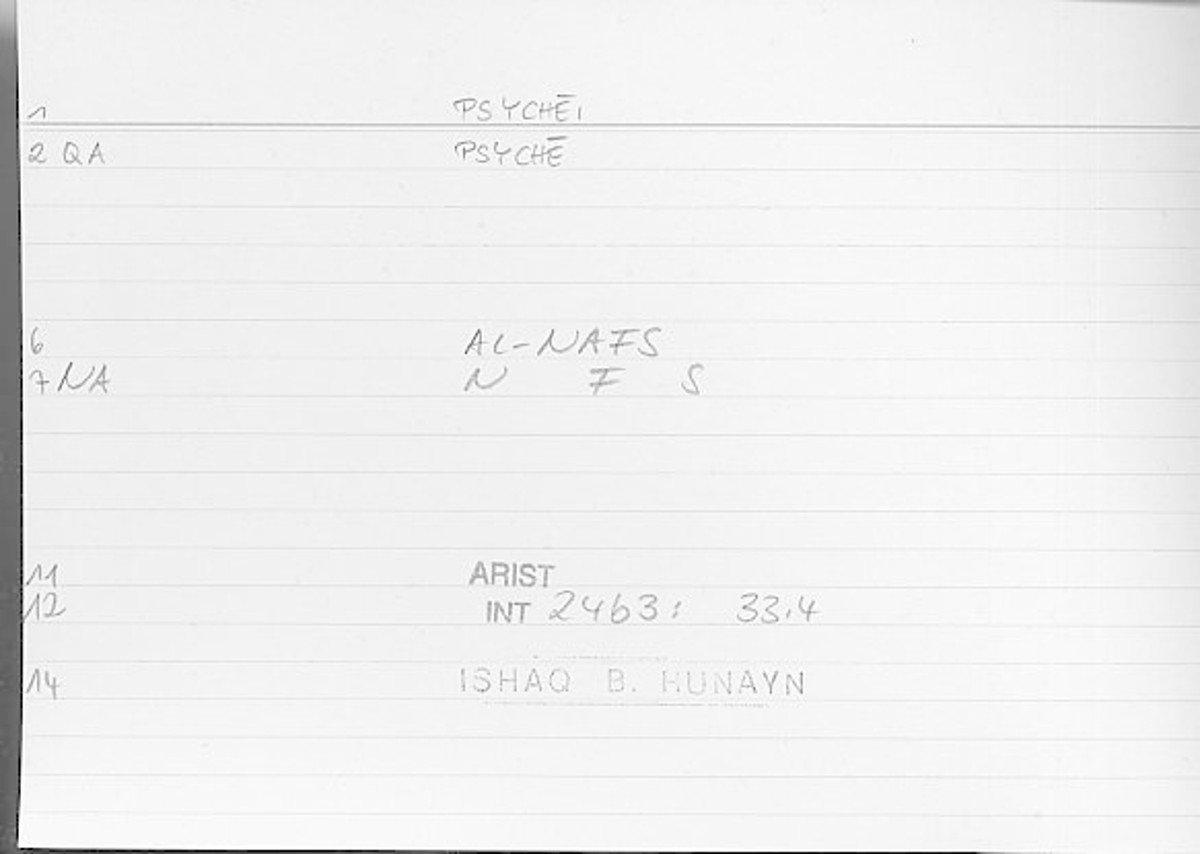 1 PSYCHĒI
2 QA PSYCHĒ
6 AL-NAFS
7 NA N F S
11 ARIST
12 INT 2463: 33,4
14 ISHAQ B. HUNAYN